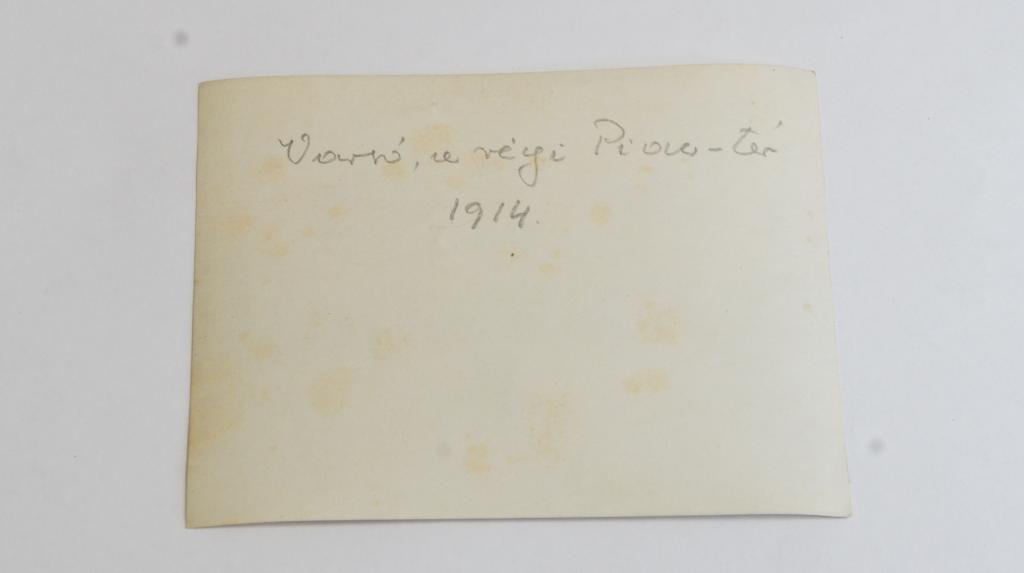 Varsó, a régi Piac-tér
1914.